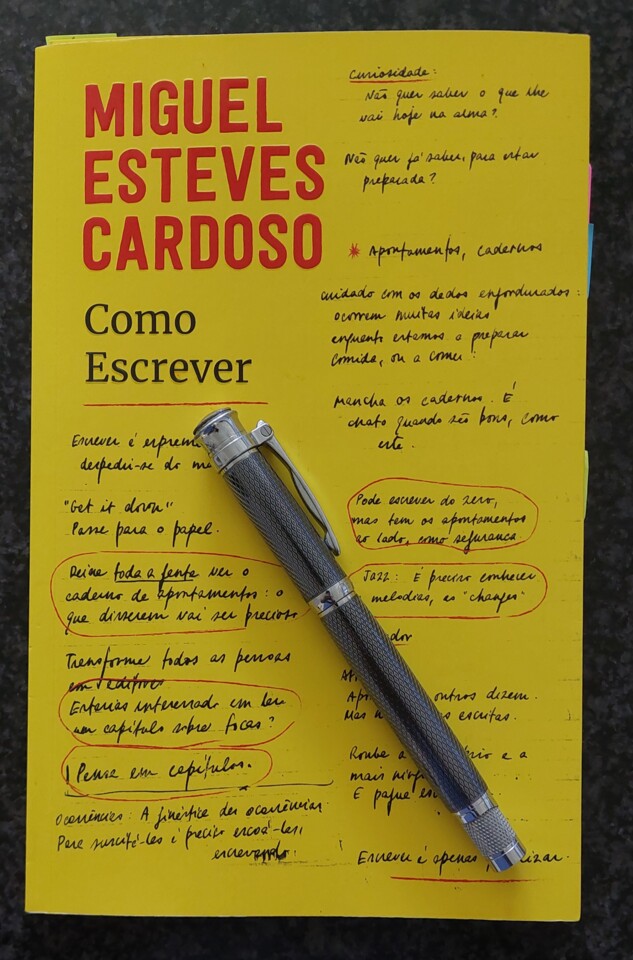 MIGUEL
ESTEVES
CARDOSO
Como
Escrever
Escrever é
despedir-se do
"Get it down"
Passe para o papel.
Deixe toda a gente ver o
caderno de apontamentos: o
que disserem vai ser precioso
Transforme todas as pessoas
em editores
Estarias interessado em ler
um capítulo sobre focas?
Pensa em capítulos.
Ocorrências: A ginástica das ocorrências
Para suscitá-las é preciso
escrevendo.
Curiosidade:
Não quer saber o que lhe
vai hoje na alma?
Não quer já saber, para estar
preparada?
* Apontamentos, cadernos
Cuidado com os dedos engordurados:
ocorrem muitas ideias
enquanto estamos a preparar
comida, ou a comer!
Mancha os cadernos. É
chato quando são bons, como
este.
Pode escrever do zero,
mas tem os apontamentos
ao lado, como segurança.
Jazz: É preciso conhecer
melodias, os "changes"
outros dizem.
Mas as escritas.
Rouba a e a
mais
E pague
Escrever é apenas